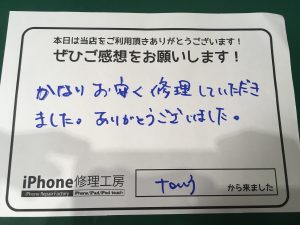 本日は当店をご利用頂きありがとうございます！
ぜひご感想をお願いします！
かなり お安く 修理していただき
ました。ありがとうございました。
iPhone修理工房
iPhone Repair Factory
iPhone/iPad/iPod touch
から来ました